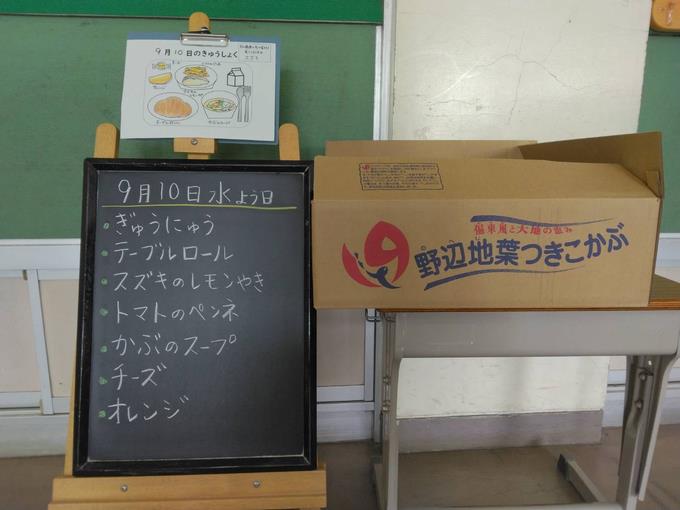 9月10日のきゅうしょく
9月10日水よう日
ぎゅうにゅう
テーブルロール
スズキのレモンやき
トマトのペンネ
かぶのスープ
チーズ
オレンジ
偏東風と大地の恵み
野辺地葉つきこかぶ